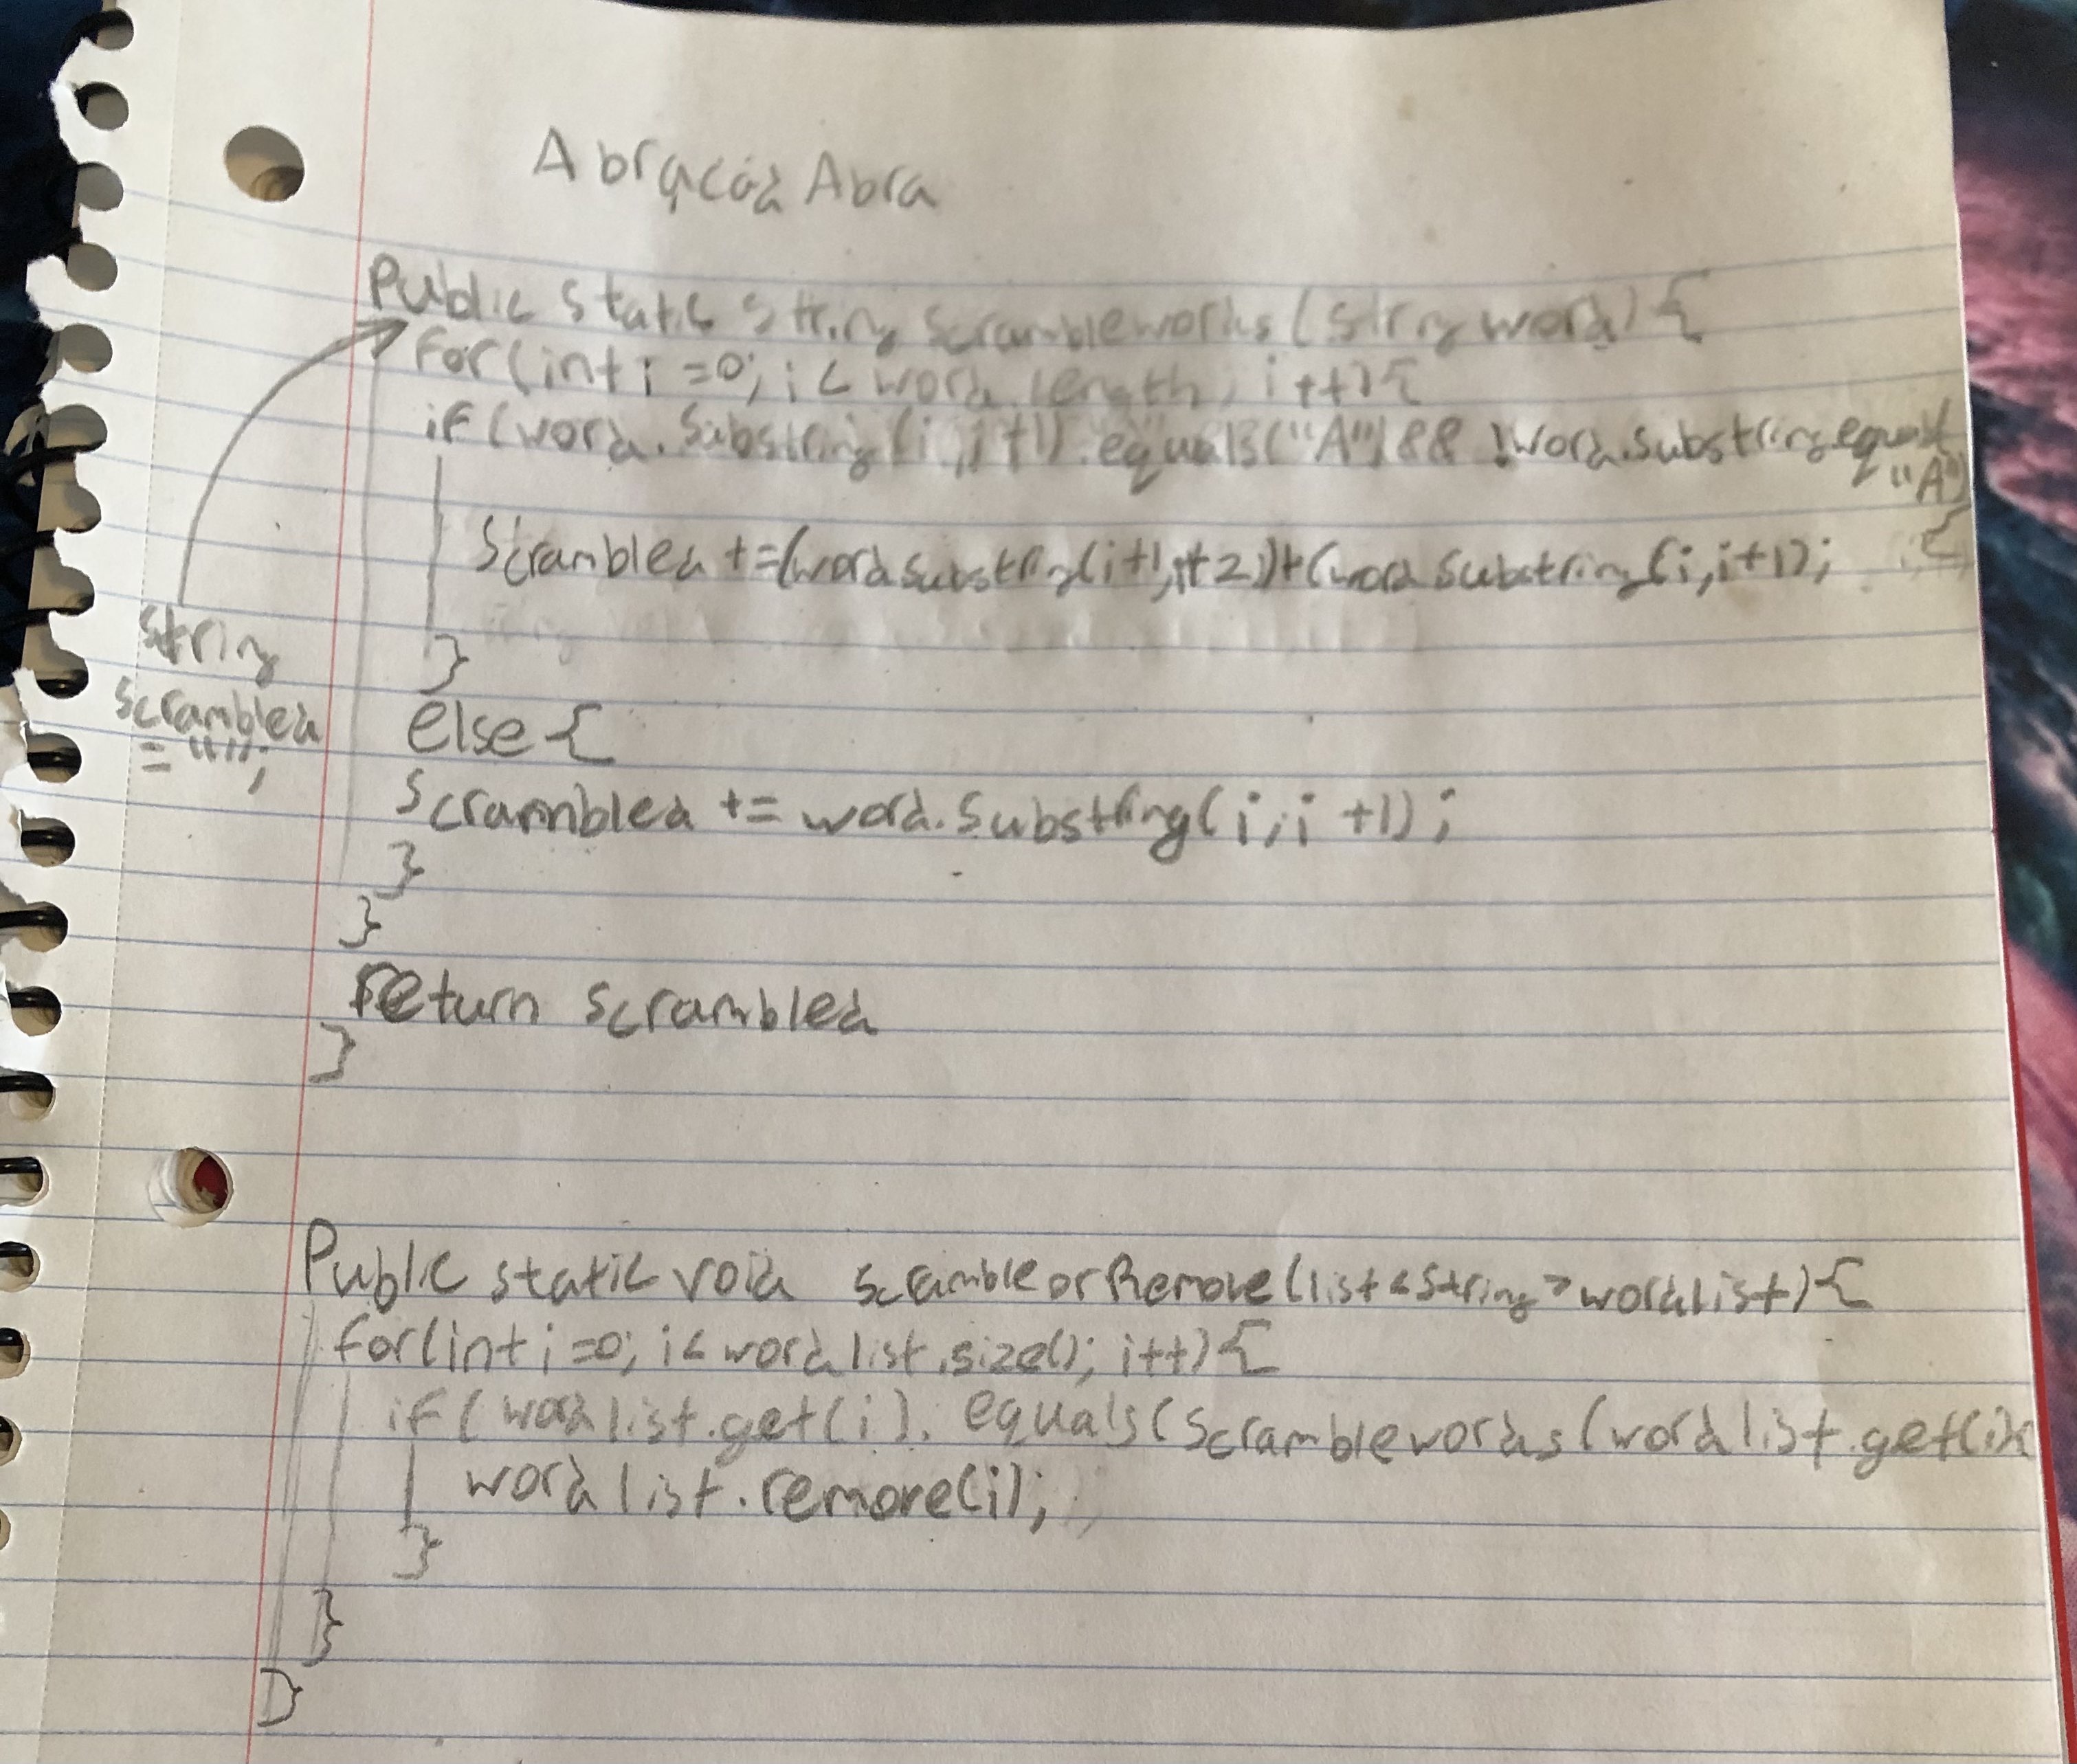 AbracadAbra
Public static String Scramblewords (String word) {
for(int i =0; i < word.length; i++){
if (word.substring(i,i+1).equals("A") && !word.substring.equals
"A")
{
Scrambled +=(word substring(i+1,i+2))+(word substring(i,i+1);
}
String
scrambled
= "";
else {
Scrambled += word.substring(i,i +1);
}
}
return scrambled
}
Public static void scrambleorRemove(list<String> wordlist){
for(int i=0; i< wordlist.size(); i++){
if (wordlist.get(i). equals(scramblewords(wordlist.get(i)
wordlist.remove(i);
}
}
}